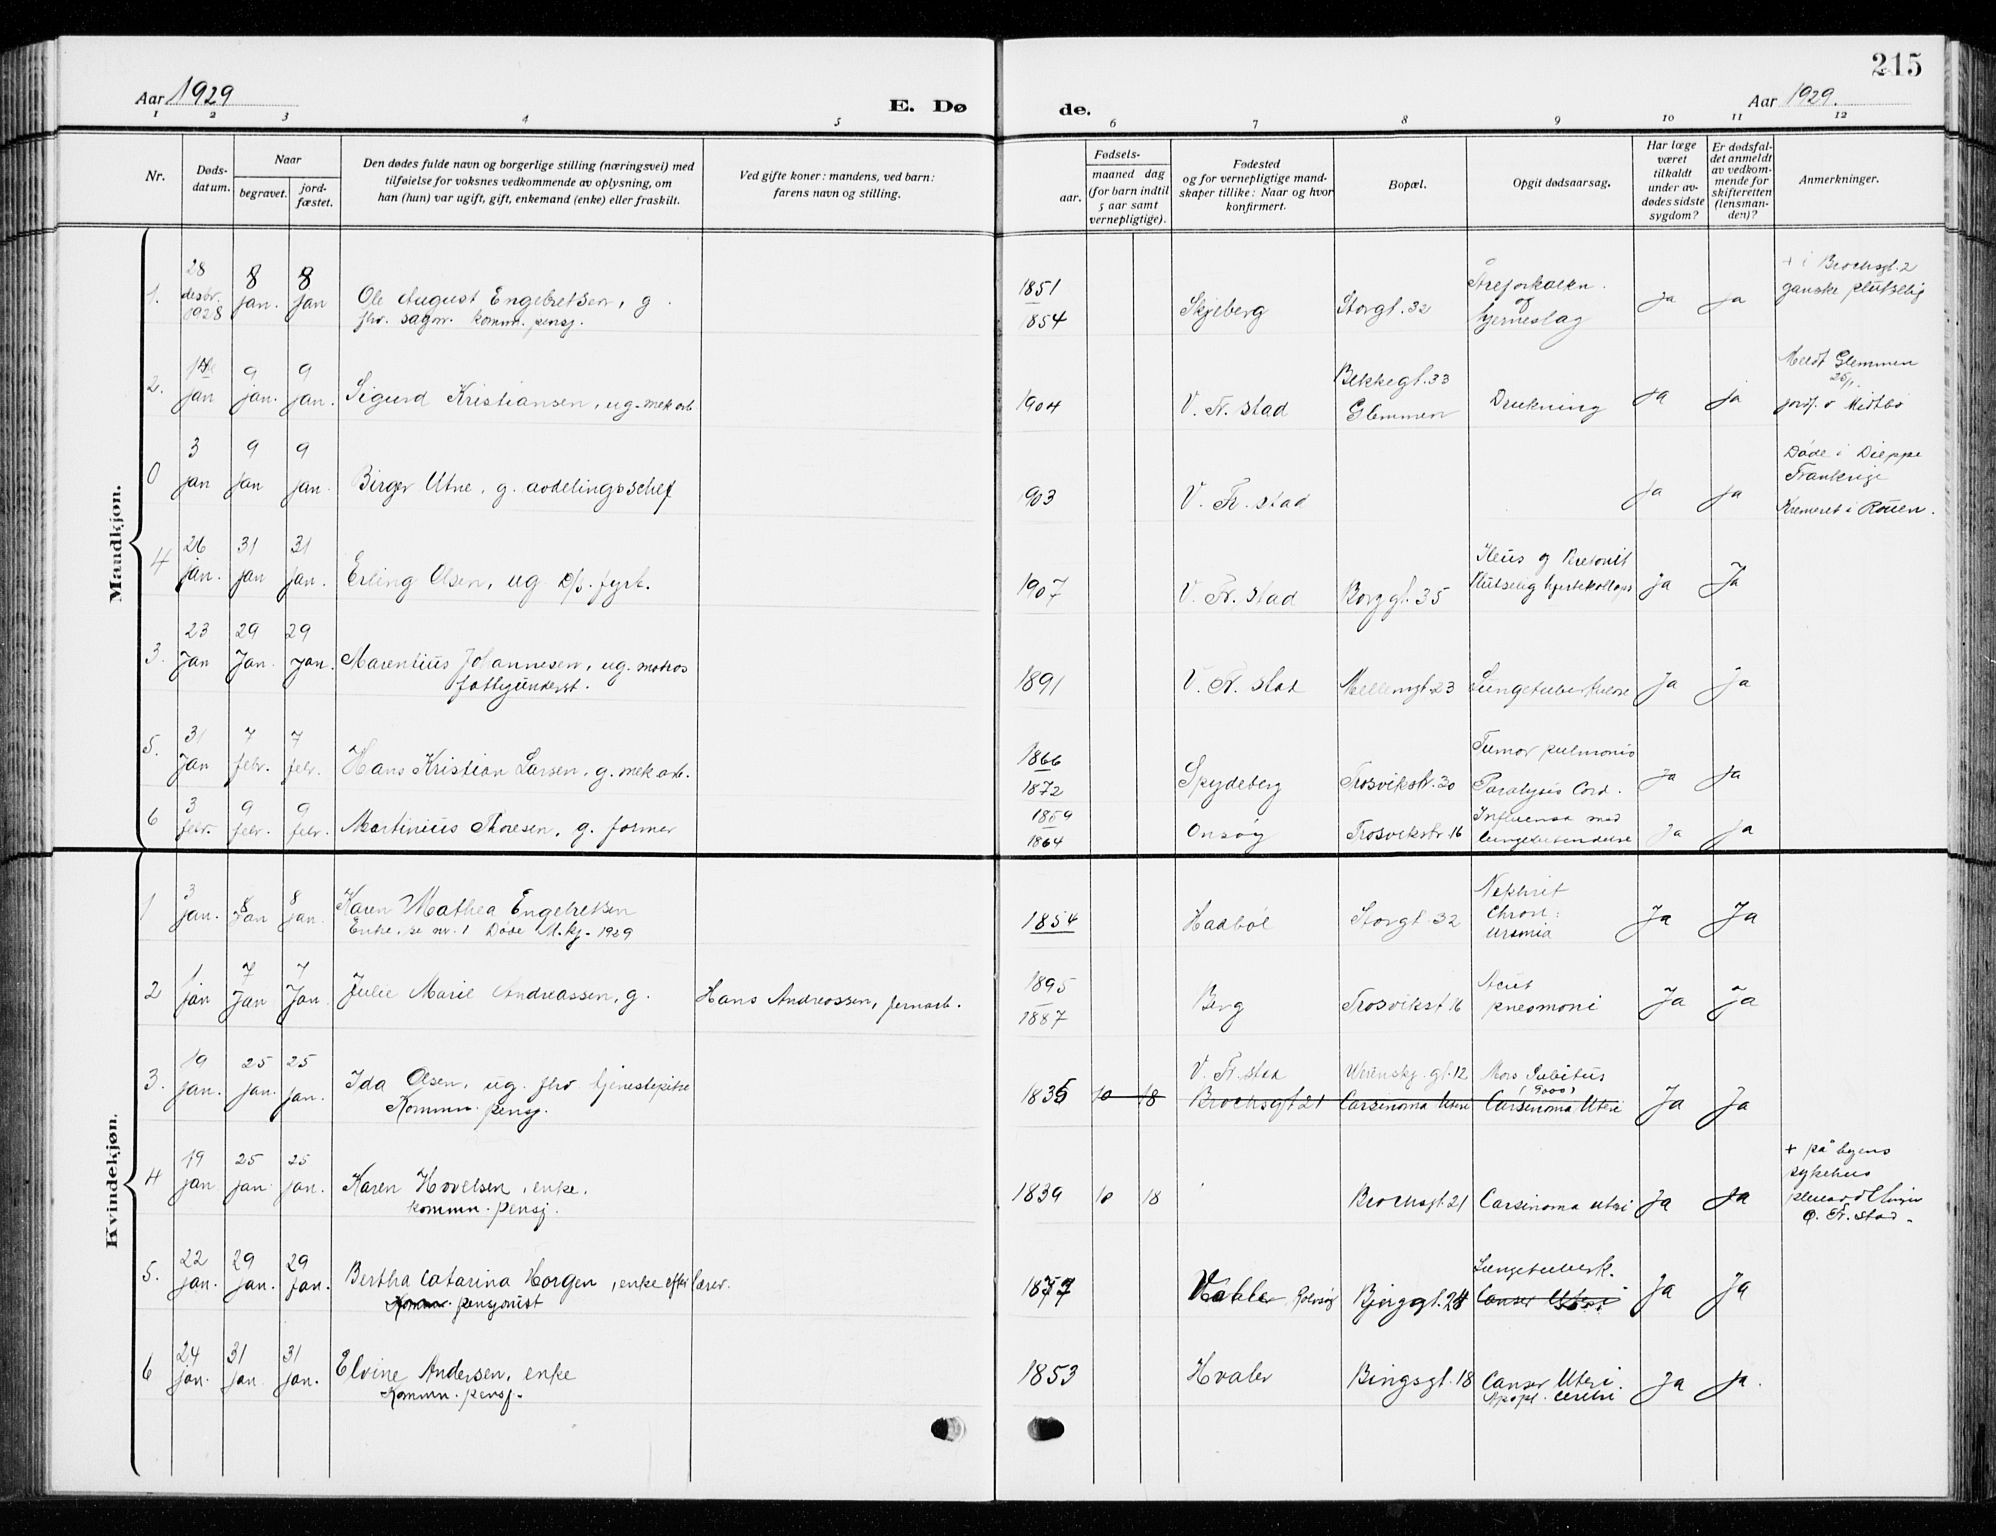 215
Aar 1929
E. Dø de.
Aar 1929.
1 2 3 4 5 6 7 8 9 10 11 12
Nr.
Døds-
datum.
Naar
begravet.
jord-
fæstet.
Den dødes fulde navn og borgerlige stilling (næringsvei) med
tilføielse for voksnes vedkommende av oplysning, om
han (hun) var ugift, gift, enkemand (enke) eller fraskilt.
Ved gifte koner: mandens, ved barn:
farens navn og stilling.
Fødsels-
aar.
maaned dag
(for barn indtil
5 aar samt
vernepligtige).
Fødested
og for vernepligtige mand-
skaper tillike: Naar og hvor
konfirmert.
Bopæl.
Opgit dødsaarsag.
Har læge
været
tilkaldt
under av-
dødes sidste
sygdom?
Er dødsfal-
det anmeldt
av vedkom-
mende for
skifteretten
(lensman-
den)?
Anmerkninger.
Mandkjøn.
1. 28 desbr. 1928 8 jan. 8 jan Ole August Engebretsen, g.
fhv. sagm. komm. pensj.
1851
1854 Skjeberg Storgt. 32 Åreforkalkn.
og
hjerneslag ja ja + i Brochsgt. 2
ganske plutselig
2. jan 9 jan. 9 jan. Sigurd Kristiansen, ug. mek arb
1904 V. Fr. stad Bekkegt. 33
Glemmen Drukning ja ja Meldt Glemmen
25/1.
jordf. v Midtbø
0 3 jan 9 jan 9 jan. Birger Utne, g. avdelingsschef
903 V. Fr. stad ja ja Døde i Dieppe
Frankrige
Kremeret i Rouen.
4 26 jan. 31 jan 31 jan. Erling Olsen, ug D/s. fyrb.
1907 V. Fr. stad Borggt. 35 Ileus og Peretonit
Plutselig hjertekollaps ja Ja
3. 23 Jan 29 Jan. 29 Jan. Marentius Johannesen, ug. matros
fattigunderst.
1891 V. Fr. stad Mellemgt. 23 Lungetuberkulose Ja ja
5. 31 Jan 7 febr. 7 febr. Hans Kristian Larsen, g. mek arb.
1866
1872 Spydeberg Trosvikstr. 30 Tumor pulmonis
Paralysis Cord. ja ja
6 3 febr. 9 febr. 9 febr. Martinius Thoresen, g. former
1859
1864 Onsøy Trosvikstr 16 Influensa med
lungebetendelse ja ja
Kvindekjøn.
1 3 jan. 8 jan 8 jan. Karen Mathea Engebretsen
Enke, se nr. 1 Døde M.kj. 1929
1854 Haabøl Storgt. 32 Nefhrit
Chron:
Uremia Ja Ja
2 1 jan 7 Jan 7 Jan. Julie Marie Andreassen, g. Hans Andreassen, jernarb.
1895
1887 Berg Trosvikst 16 Acut
pneomoni Ja Ja
3. 19 jan. 25 jan. 25 jan. Ida Olsen, ug. fhv tjenestepike
Kommn. pensj.
1835 10 18 V. Fr. stad
Brochsgt 21 Werenskj. gt. 12
Carsinoma Uteri Mors Subitus
Carsinoma Uteri Ja Ja
4 19 jan 25 jan 25 jan. Karen Hovelsen, enke.
kommn. pensj.
1839 10 18 Brochsgt. 21 Carsinoma uteri Ja Ja + på byens
sykehus
Ø. Fr. stad.
5. 22 jan. 29 jan. 29 jan. Bertha Catarina Horgen, enke efter lærer.
Kommn. pensjonist
1877 Bjerggt. 24 Lungetuberk.
Canser Uteri Ja Ja
6 24 jan. 31 jan 31 jan. Elvine Andersen, enke
Kommn. pensj.
1853 Hvaler Bingsgt. 18 Canser Uteri.
Apopl. cerebri. Ja ja.